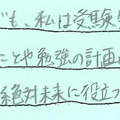 でも、私は受験
ことや勉強の計画
絶対未来に役立つ